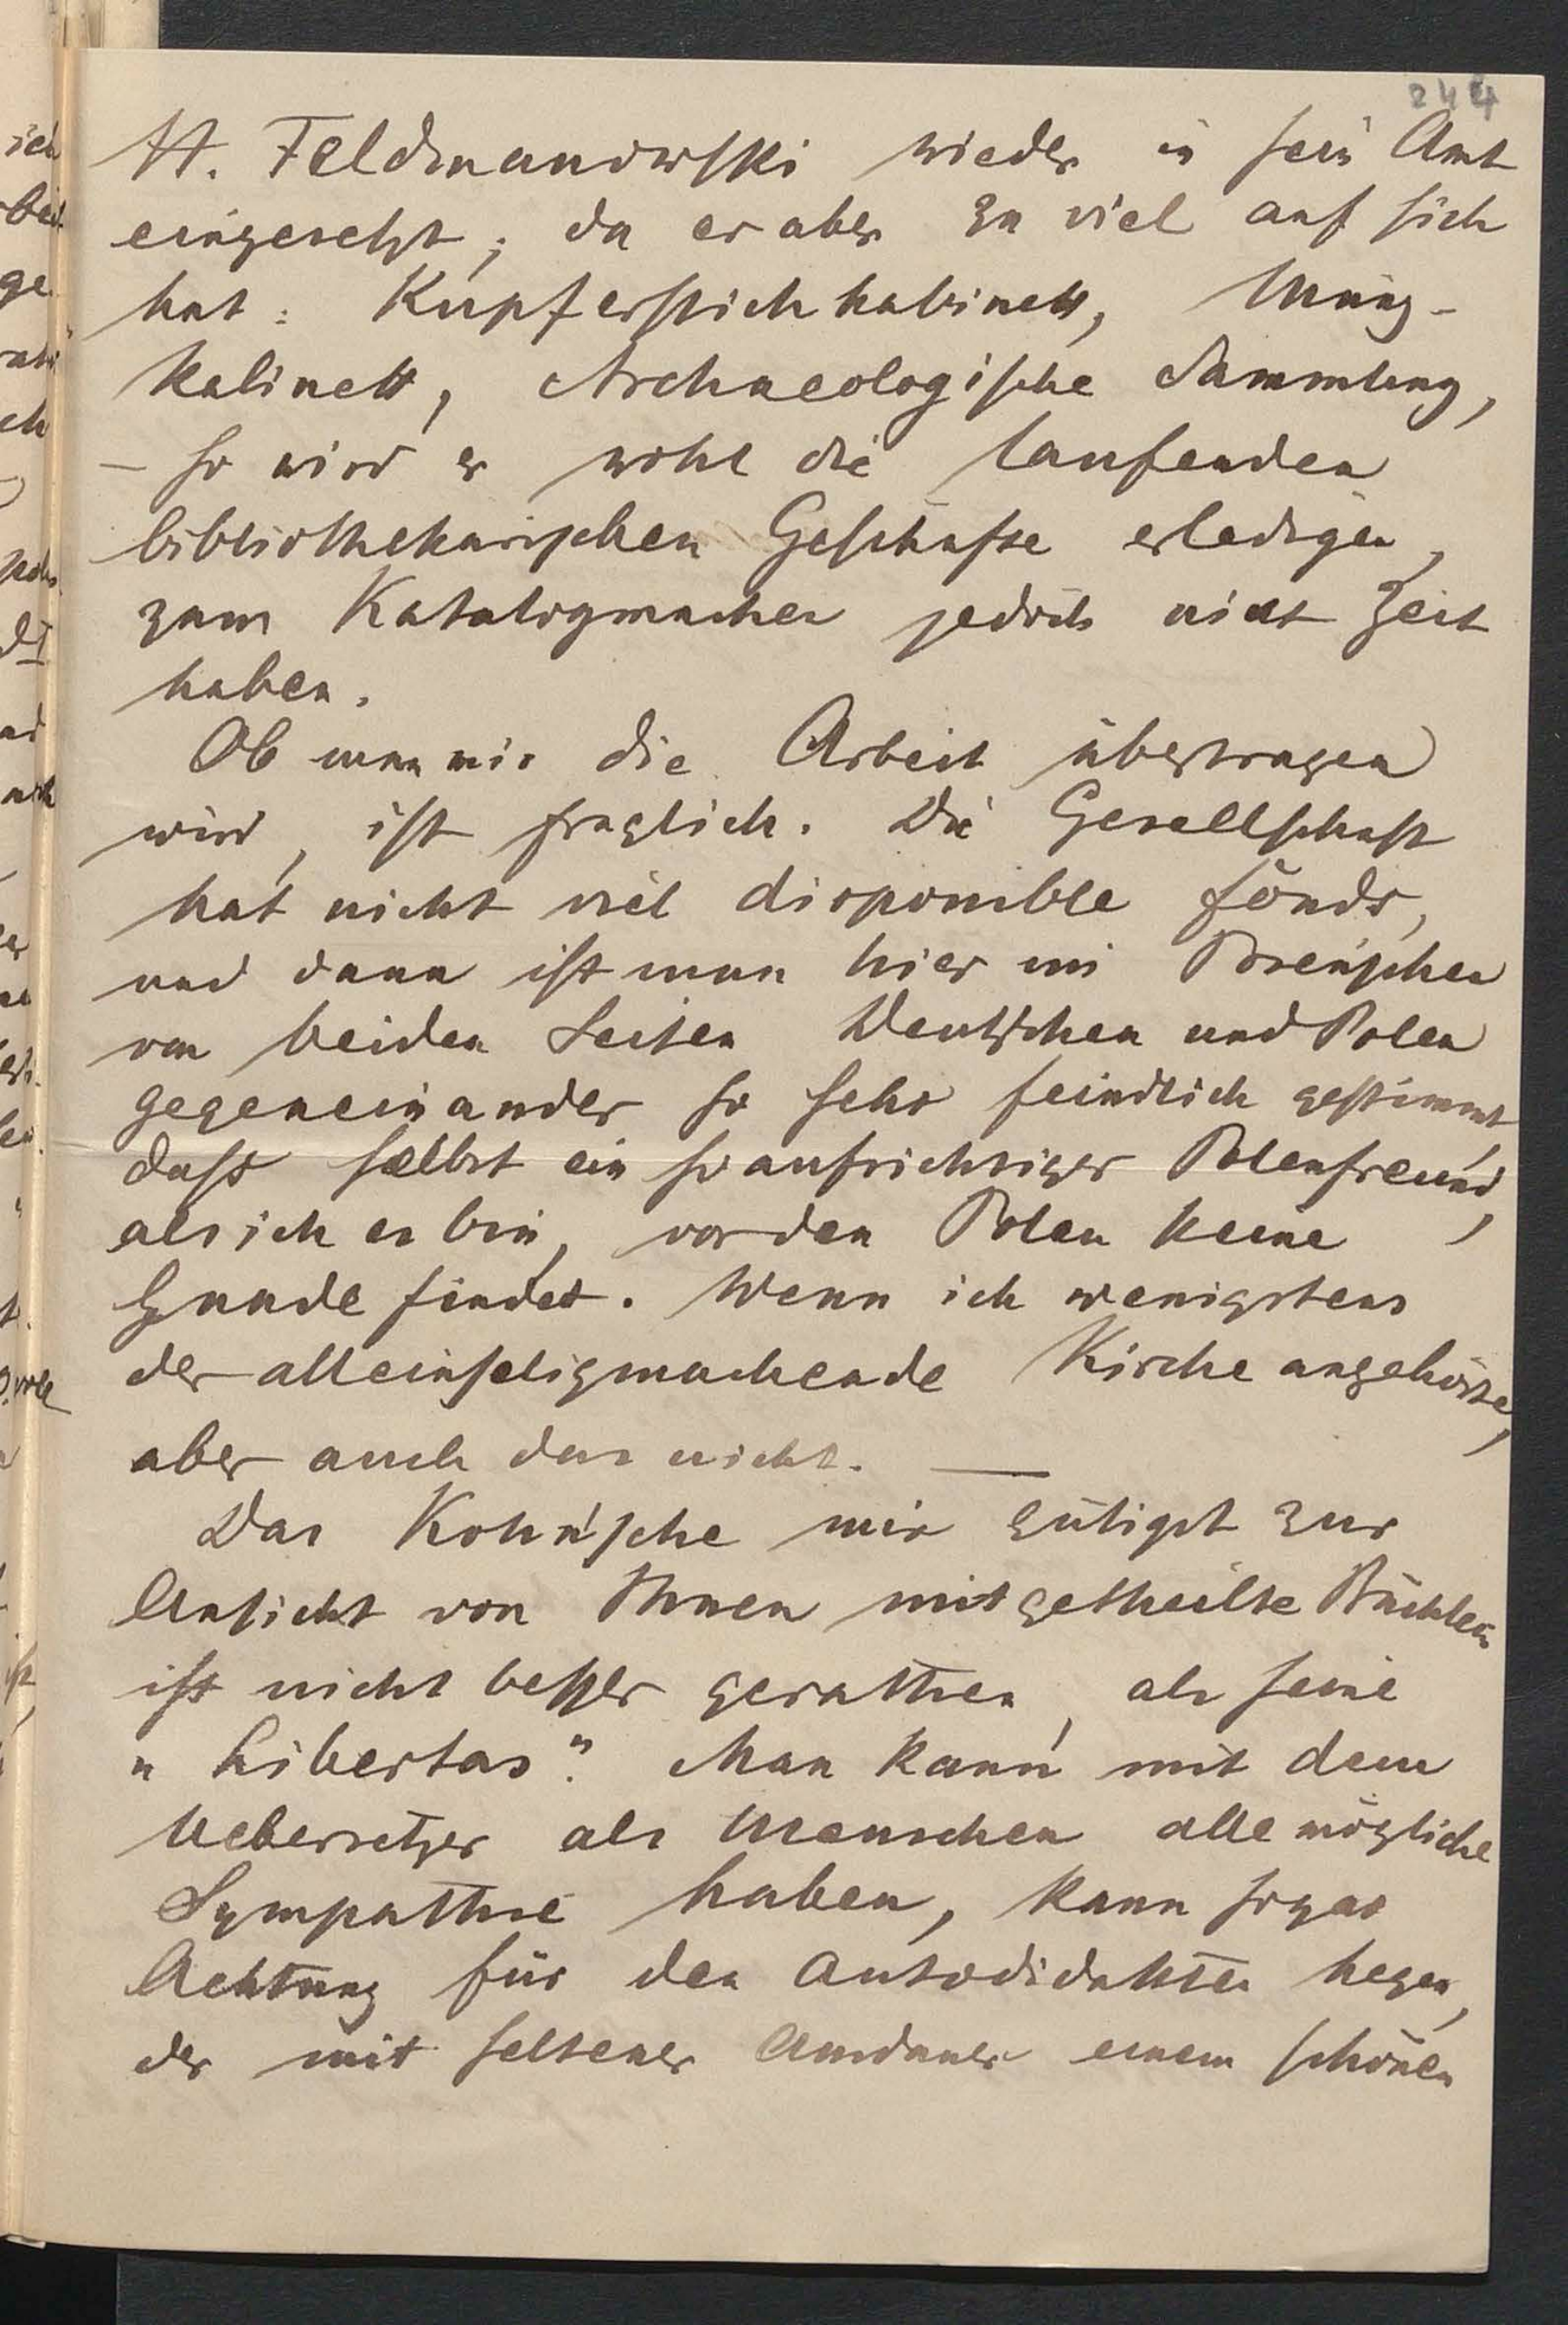 244
H. Feldmanowski wieder in sein Amt
eingesetzt; da er aber zu viel auf sich
hat: Kupferstichkabinett, Münz-
kabinett, Archaeologische Sammlung,
— so wird er wohl die laufenden
bibliothekarischen Geschäfte erledigen,
zum Katalogmachen jedoch nicht Zeit
haben.
Ob man mir die Arbeit übertragen
wird, ist fraglich. Die Gesellschaft
hat nicht viel disponible fonds,
und dann ist man hier im Posen'schen
von beiden Seiten Deutschen und Polen
gegeneinander so sehr feindlich gestimmt,
dass selbst ein so aufrichtiger Polenfreund,
als ich es bin, vor den Polen keine
Gnade findet. Wenn ich wenigstens
der alleinseligmachende Kirche angehörte,
aber auch das nicht. —
Das Kohn'sche mir gütigst zur
Ansicht von Ihnen mitgetheilte Büchlein
ist nicht besser gerathen, als seine
"Libertas". Man kann mit dem
Uebersetzer als Menschen alle mögliche
Sympathie haben, kann sogar
Achtung für den Autodidakten hegen,
der mit seltener Ausdauer einem schönen